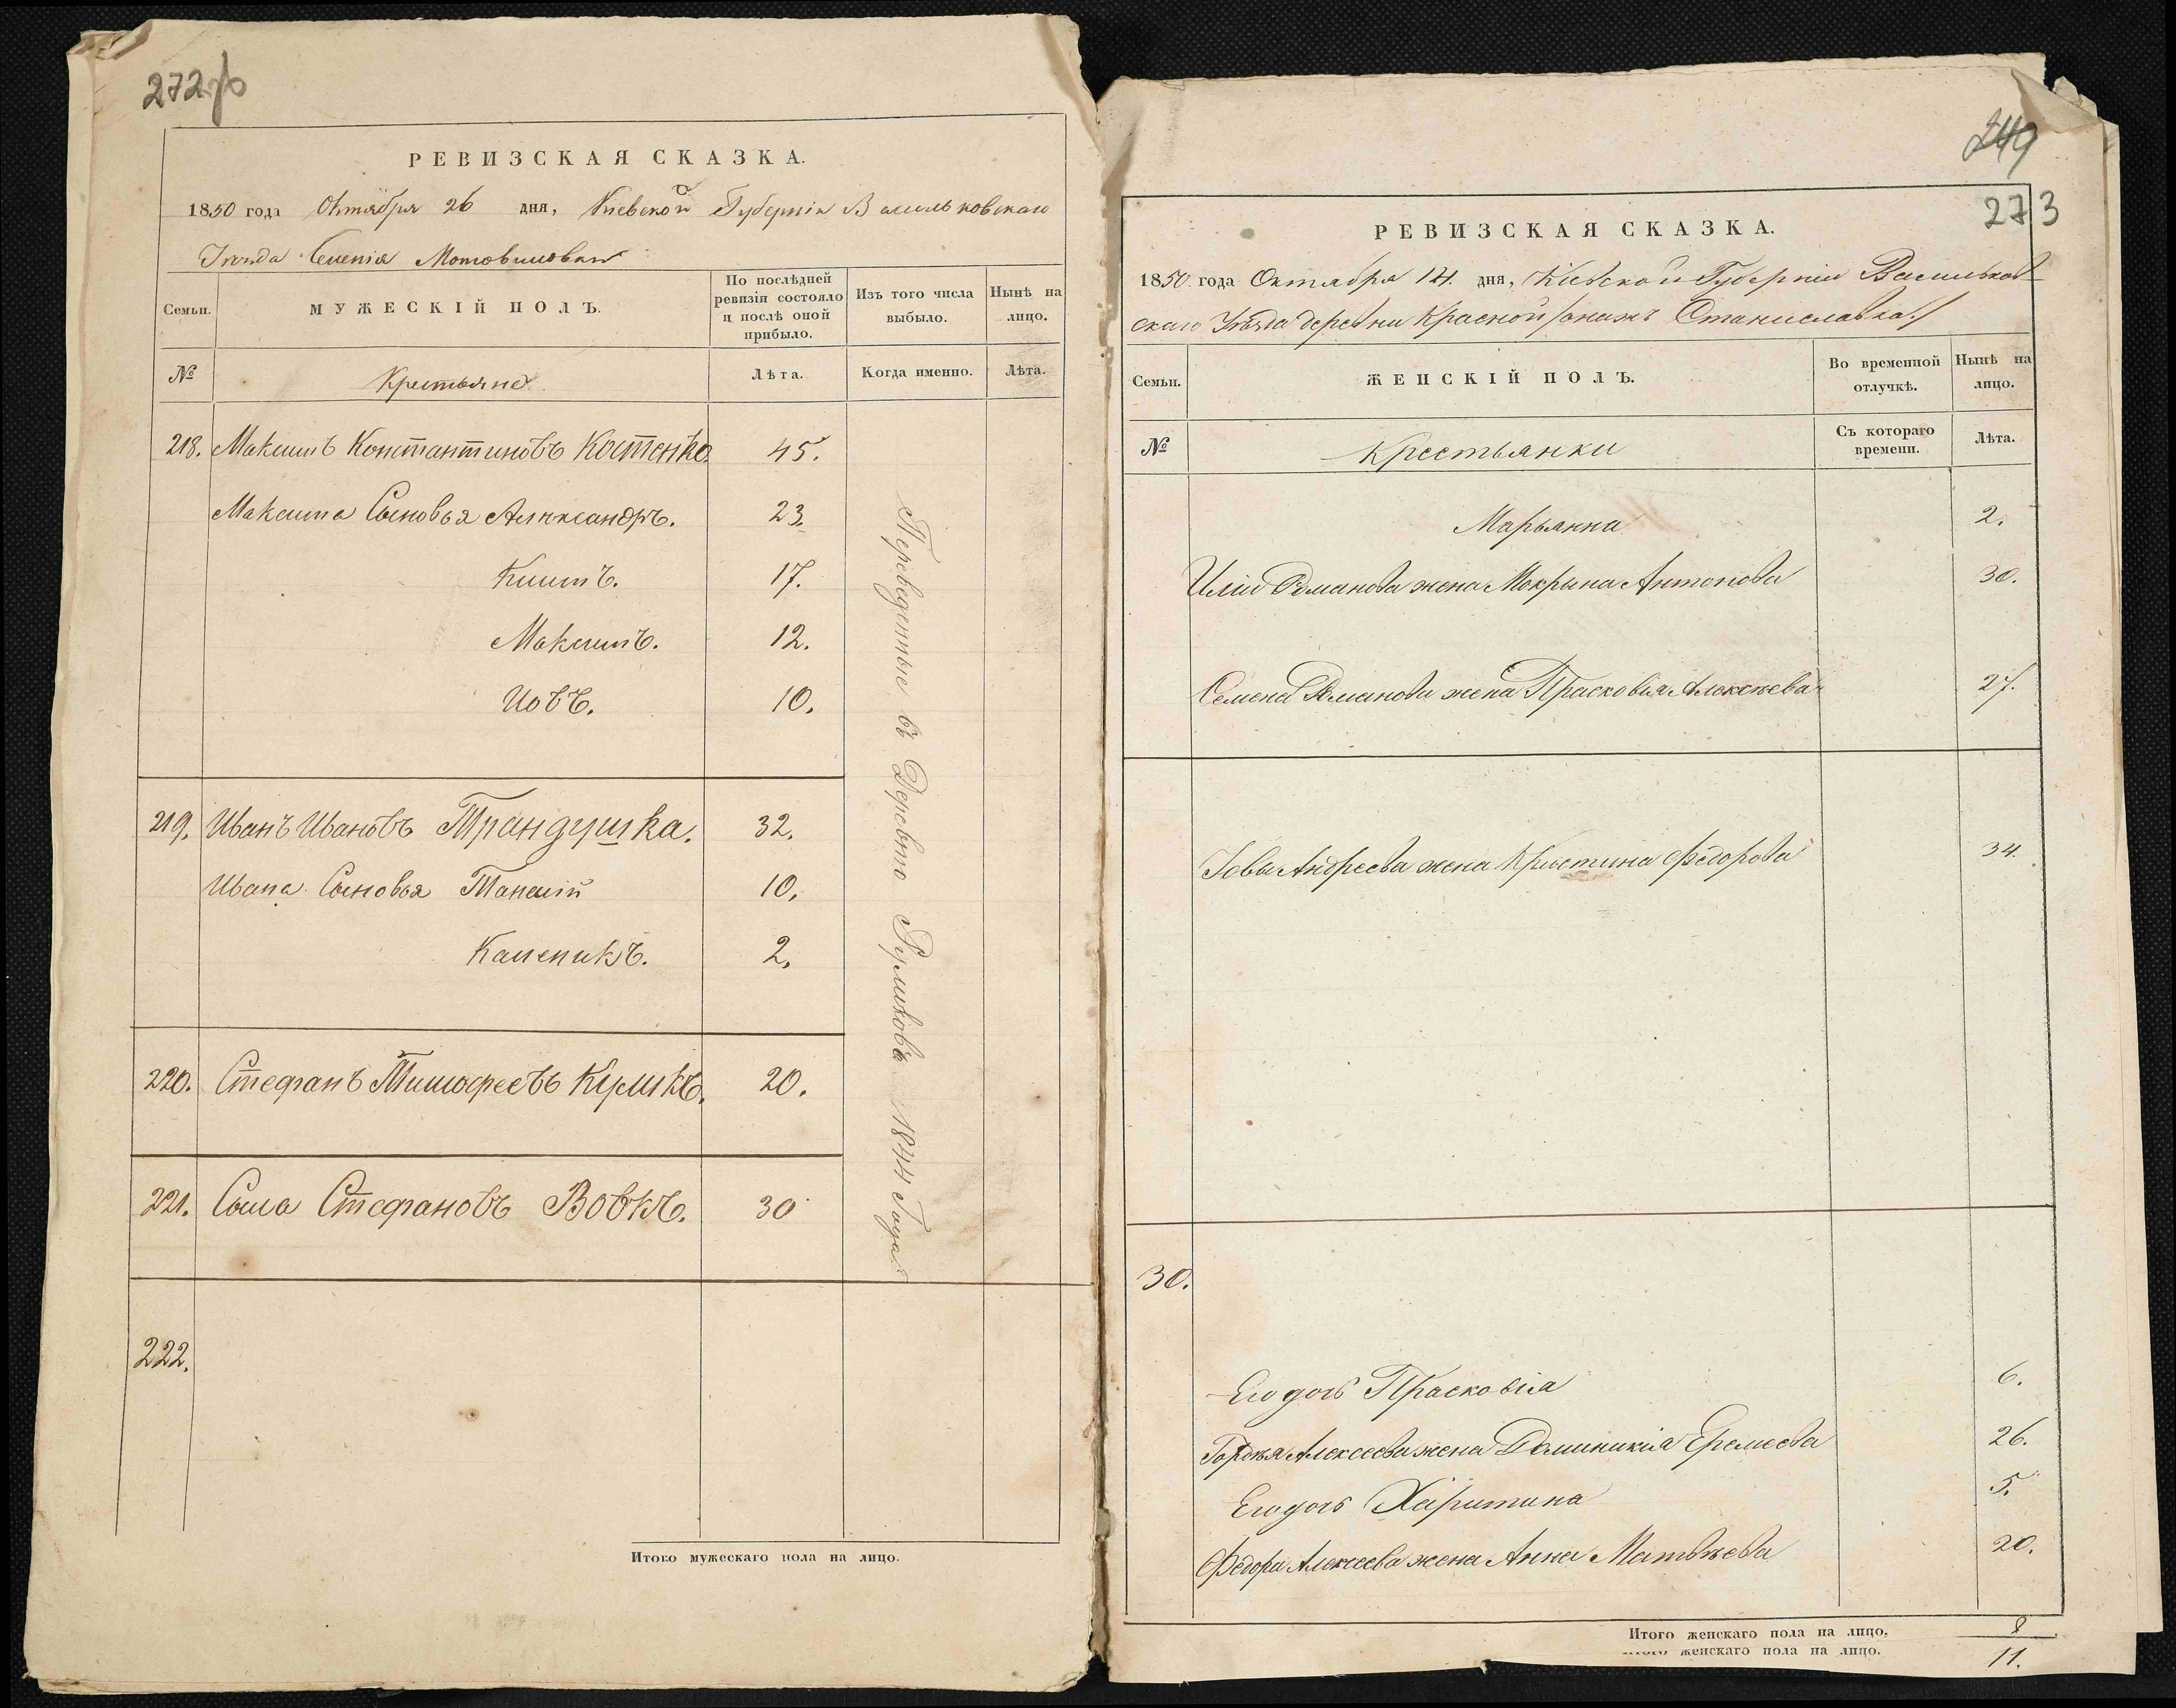 272об
РЕВИЗСКАЯ СКАЗКА.
1850 года Октября 26 дня, Киевской Губерніи Васильковскаго
Уезда Селенія Мотовиловки
Семьи.
МУЖЕСКІЙ ПОЛЪ.
По послѣдней ревизіи состояло и послѣ оной прибыло.
Изъ того числа выбыло.
Нынѣ на лицо.
№
Крестьяне
Лѣта.
Когда именно.
Лѣта.
218. Максимъ Константиновъ Костенко. 45.
Максима Сыновья Александръ. 23.
Климъ. 17.
Максимъ. 12.
Иовъ. 10.
219. Иванъ Ивановъ Трандушка. 32.
Ивана Сыновья Танасий 10.
Каленикъ. 2.
220. Стефанъ Тимофеевъ Куликъ. 20.
221. Сыла Стефановъ Вовкъ. 30
222.
Переведенные въ Деревню 1844 Года
Итого мужескаго пола на лицо.
249
273
РЕВИЗСКАЯ СКАЗКА.
1850 года Октября 14. дня, Кіевской Губерніи Васильков-
скаго Уѣзда деревни Красной /онажъ Станиславка./
Семьи.
ЖЕНСКІЙ ПОЛЪ.
Во временной отлучкѣ.
Нынѣ на лицо.
№
Крестьянки
Съ котораго времени.
Лѣта.
Марьянна 2.
Иліи Романова жена Мокрына Антонова 30.
Семена Романова жена Прасковія Алексѣева 27.
Іовы Андреева жена Крыстина Федорова 34.
30.
Его дочь Прасковія 6.
Гордѣя Алексеева жена Доминикія Еремеева 26.
Его дочь Харитина 5.
Федора Алексеева жена Анна Матвѣева 20.
Итого женскаго пола на лицо. 8
женскаго пола на лицо. 11.